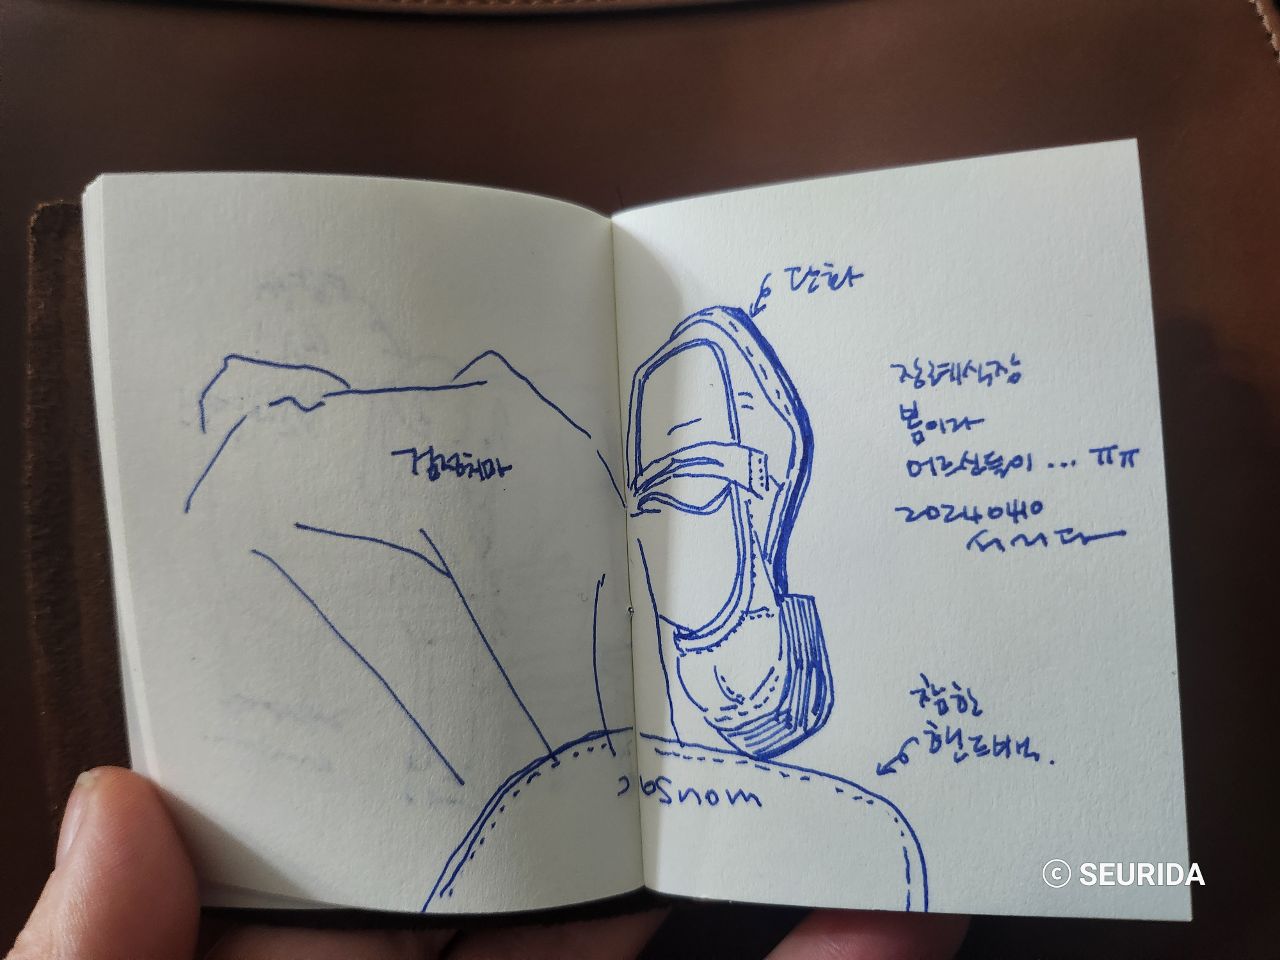 검정치마
단화
장례식장
봄이라
어르신들이 ... ㅠㅠ
20240410
서리다
참한
핸드백.
mousac
© SEURIDA